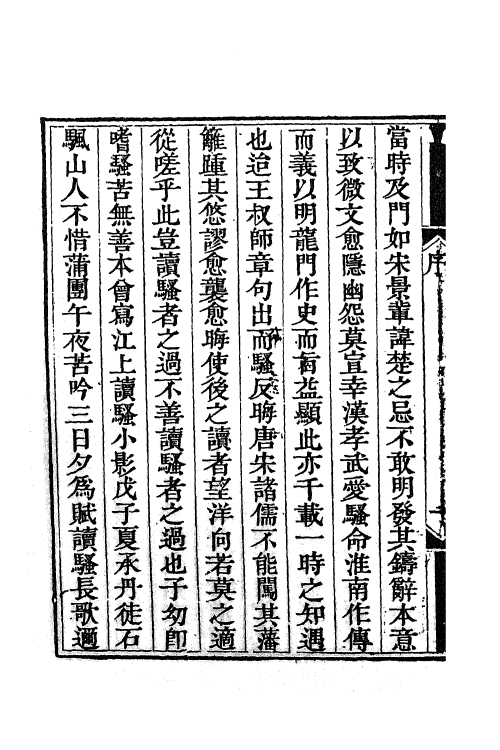 序
當時及門如宋景輩諱楚之忌不敢明發其鑄辭本意
以致微文愈隱幽怨莫宣幸漢孝武愛騷命淮南作傳
而義以明龍門作史而旨益顯此亦千載一時之知遇
也迨王叔師章句出而騷反晦唐宋諸儒不能闖其藩
籬踵其悠謬愈襲愈晦使後之讀者望洋向若莫之適
從嗟乎此豈讀騷者之過不善讀騷者之過也予幼卽
嗜騷苦無善本曾寫江上讀騷小影戊子夏承丹徒石
颿山人不惜蒲團午夜苦吟三日夕爲賦讀騷長歌適